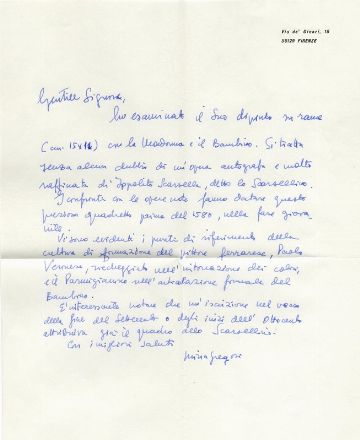 Via de' Ginori, 18
50129 FIRENZE
Gentile Signora,
ho esaminato il Suo dipinto su rame
(cm. 15x12) con la Madonna e il Bambino. Si tratta
senza alcun dubbio di un'opera autografa e molto
raffinata di Ippolito Scarsella, detto lo Scarsellino.
I confronti con le opere note fanno datare questo
prezioso quadretto prima del 1580, nella fase giova-
nile.
Vi sono evidenti i punti di riferimento della
cultura di formazione del pittore ferrarese, Paolo
Veronese, riecheggiato nell'intonazione dei colori,
e il Parmigianino nell'articolazione formale del
Bambino.
E' interessante notare che un'iscrizione nel verso
della fine del Settecento o degli inizi dell'Ottocento
attribuiva già il quadro allo Scarsellino.
Con i migliori saluti
Mina Gregori